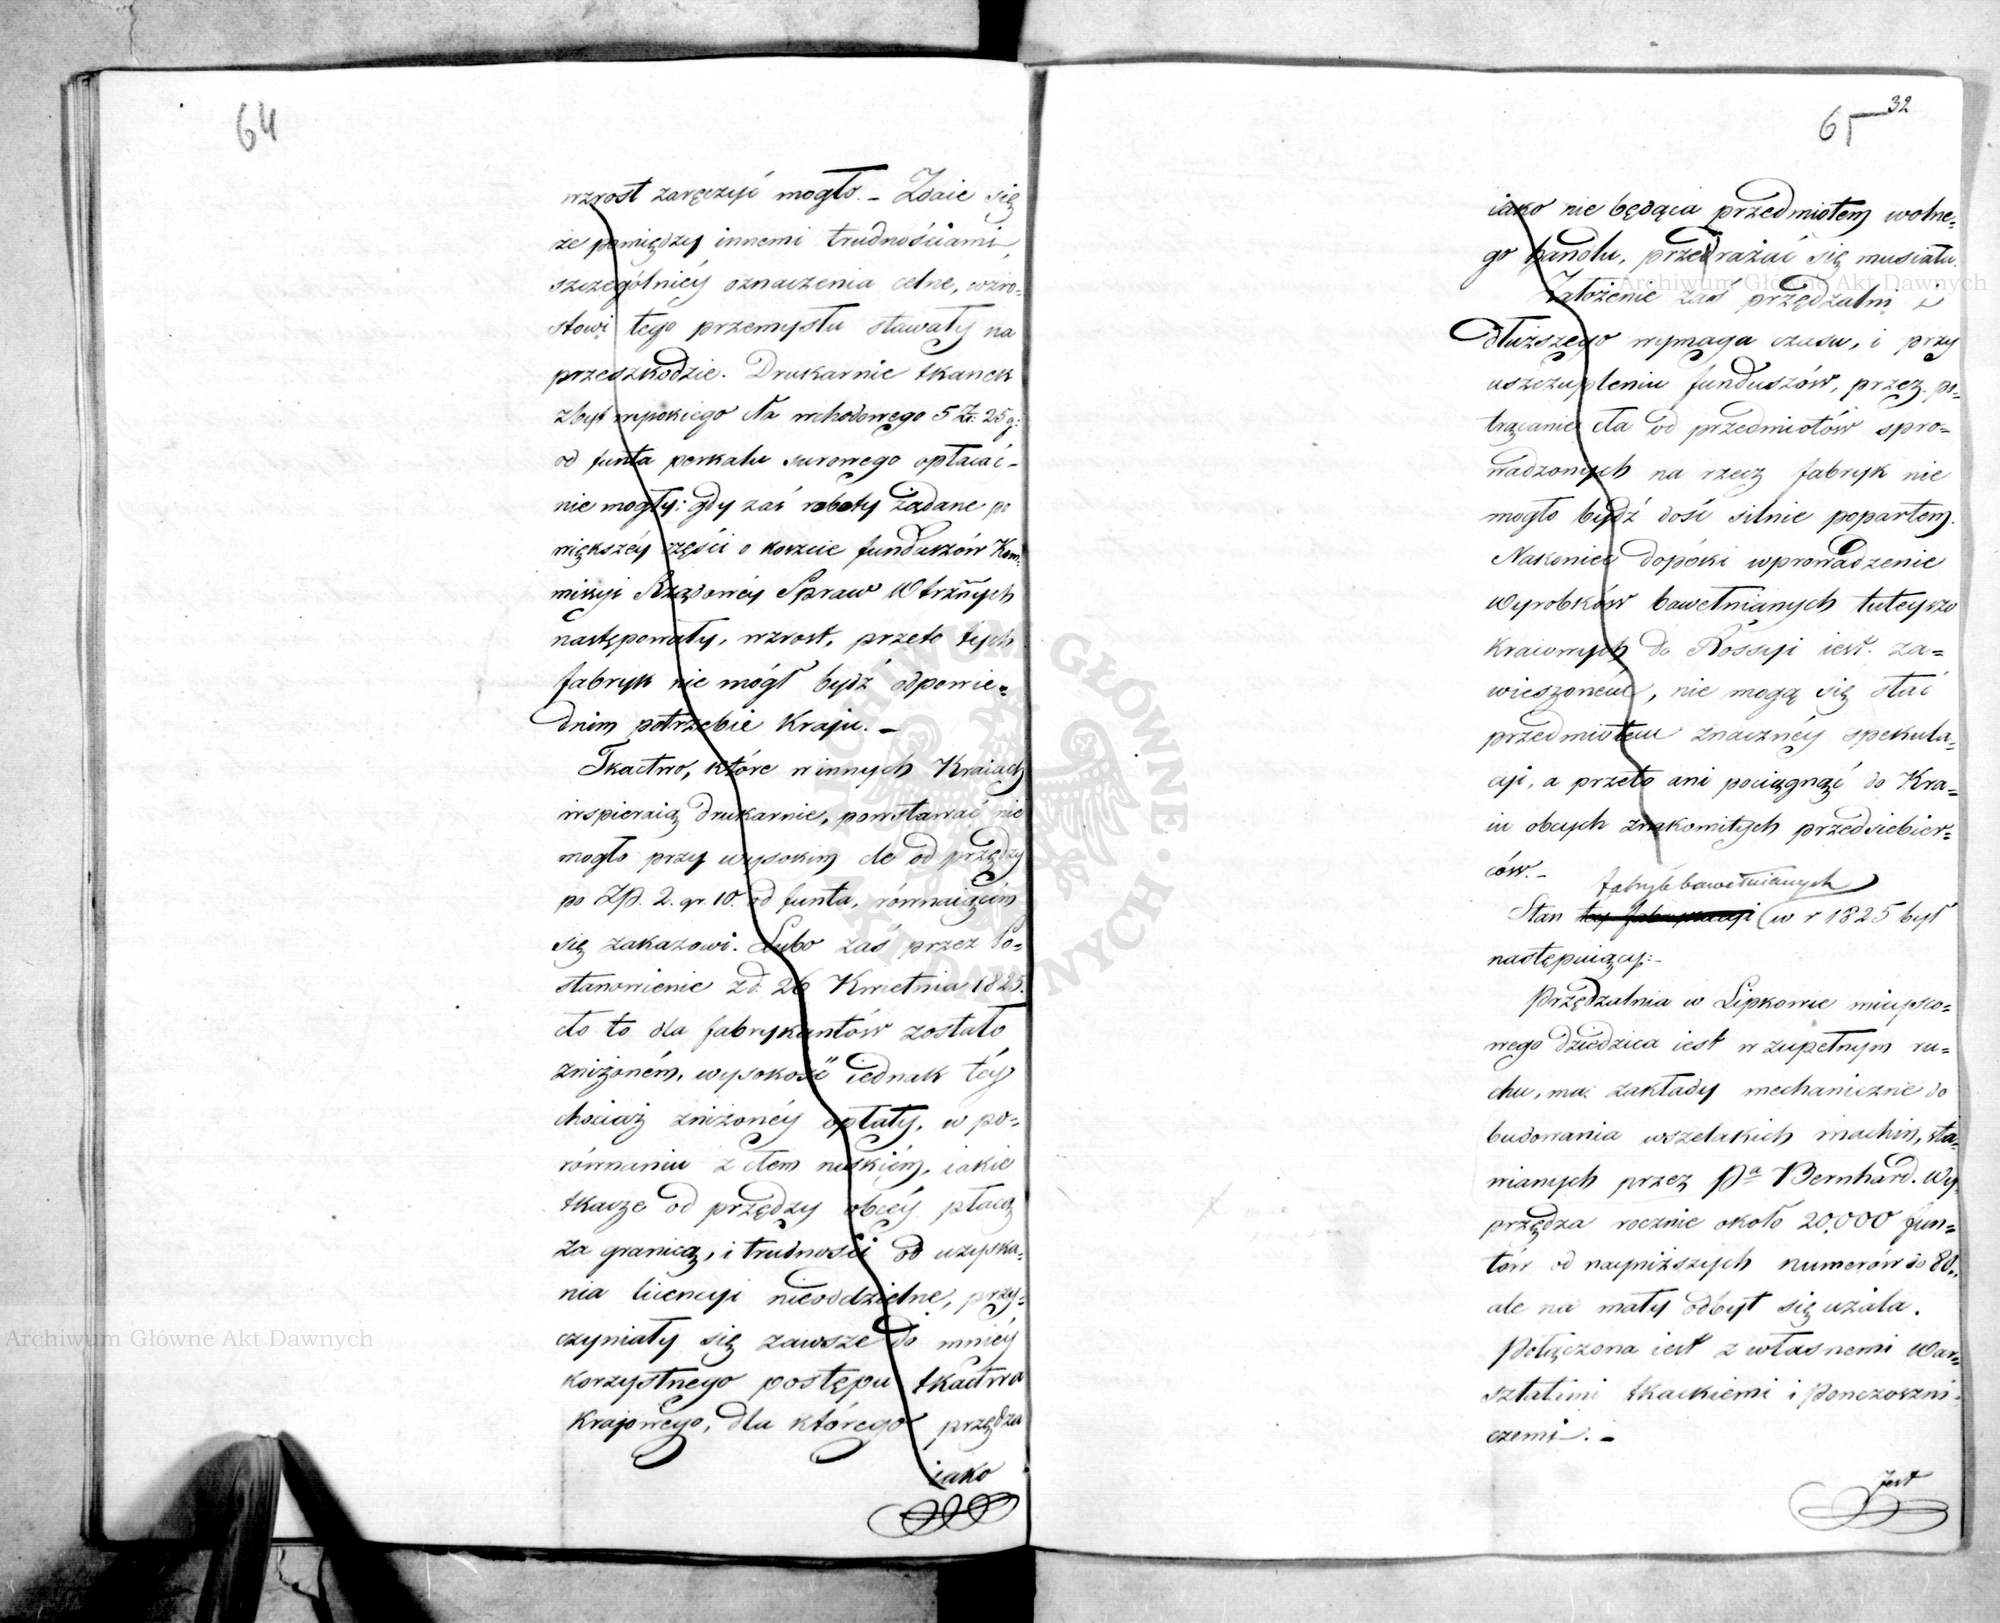 64
wzrost zaręczyć mogło. – Zdaie się
że pomiędzy innemi trudnościami,
szczególniéy oznaczenia celne, wzro=
stowi tego przemysłu stawały na
przeszkodzie. Drukarnie tkanek
zbyt wysokiego cła wchodowego 5 Zł: 25 g:
od funta perkalu surowego opłacać –
nie mogły: gdy zaś roboty żądane po
większéy części o koszcie funduszów Kom=
missyi Rządowéy Spraw Wtrznych
następowały, wzrost, przeto tych
fabryk nie mógł bydź odpowie=
dnim potrzebie Kraju. –
Tkactwo, które w innych Kraiach
wspieraią drukarnie, powstawać nie
mogło przy wysokim cle od przędzy
po Zp. 2. gr. 10. od funta, równaiącém
się zakazowi. Lubo zaś przez Po=
stanowienie z d. 26 Kwietnia 1825.
cło to dla fabrykantów zostało
zniżoném, wysokość iednak téy
chociaż zniżonéy opłaty, w po=
równaniu z cłem niskiém, iakie
tkacze od przędzy obcéy płacą
za granicą, i trudności od uzyska=
nia licencyi nieoddzielne, przy=
czyniały się zawsze do mniéy
korzystnego postępu tkactwa
Krajowego, dla którego przędza
iako
65 32
iako nie będąca przedmiotem wolne=
go handlu, przedrażać się musiała.
Założenie zaś przędzalni
dłuższego wymaga czasu, i przy
uszczupleniu funduszów, przez po=
trącanie cła od przedmiotów spro=
wadzonych na rzecz fabryk nie
mogło bydź dość silnie popartem.
Nakoniec dopóki wprowadzenie
wyrobków bawełnianych tuteyszo
Kraiowych do Rossyi iest za=
wieszoném, nie mogą się stać
przedmiotem znacznéy spekula=
cyi, a przeto ani pociągnąć do Kra=
iu obcych znakomitych przedsiebier=
ców. –
fabryk bawełnianych
Stan tey fabrykacyi w r 1825 był
następuiący: –
Przędzalnia w Lipkowie mieysco=
wego dziedzica iest w zupełnym ru=
chu, ma zakłady mechaniczne do
budowania wszelakich machin, sta=
wianych przez Pa Bernhard. Wy=
przędza rocznie około 20,000 fun=
tów od nayniższych numerów do 80.,
ale na mały odbyt się użala.
Połączona iest z własnemi War=
sztatami tkackiemi i Ponczoszni=
czemi. –
Jest
Archiwum Główne Akt Dawnych
Archiwum Główne Akt Dawnych
ARCHIWUM GŁÓWNE · AKT DAWNYCH ·